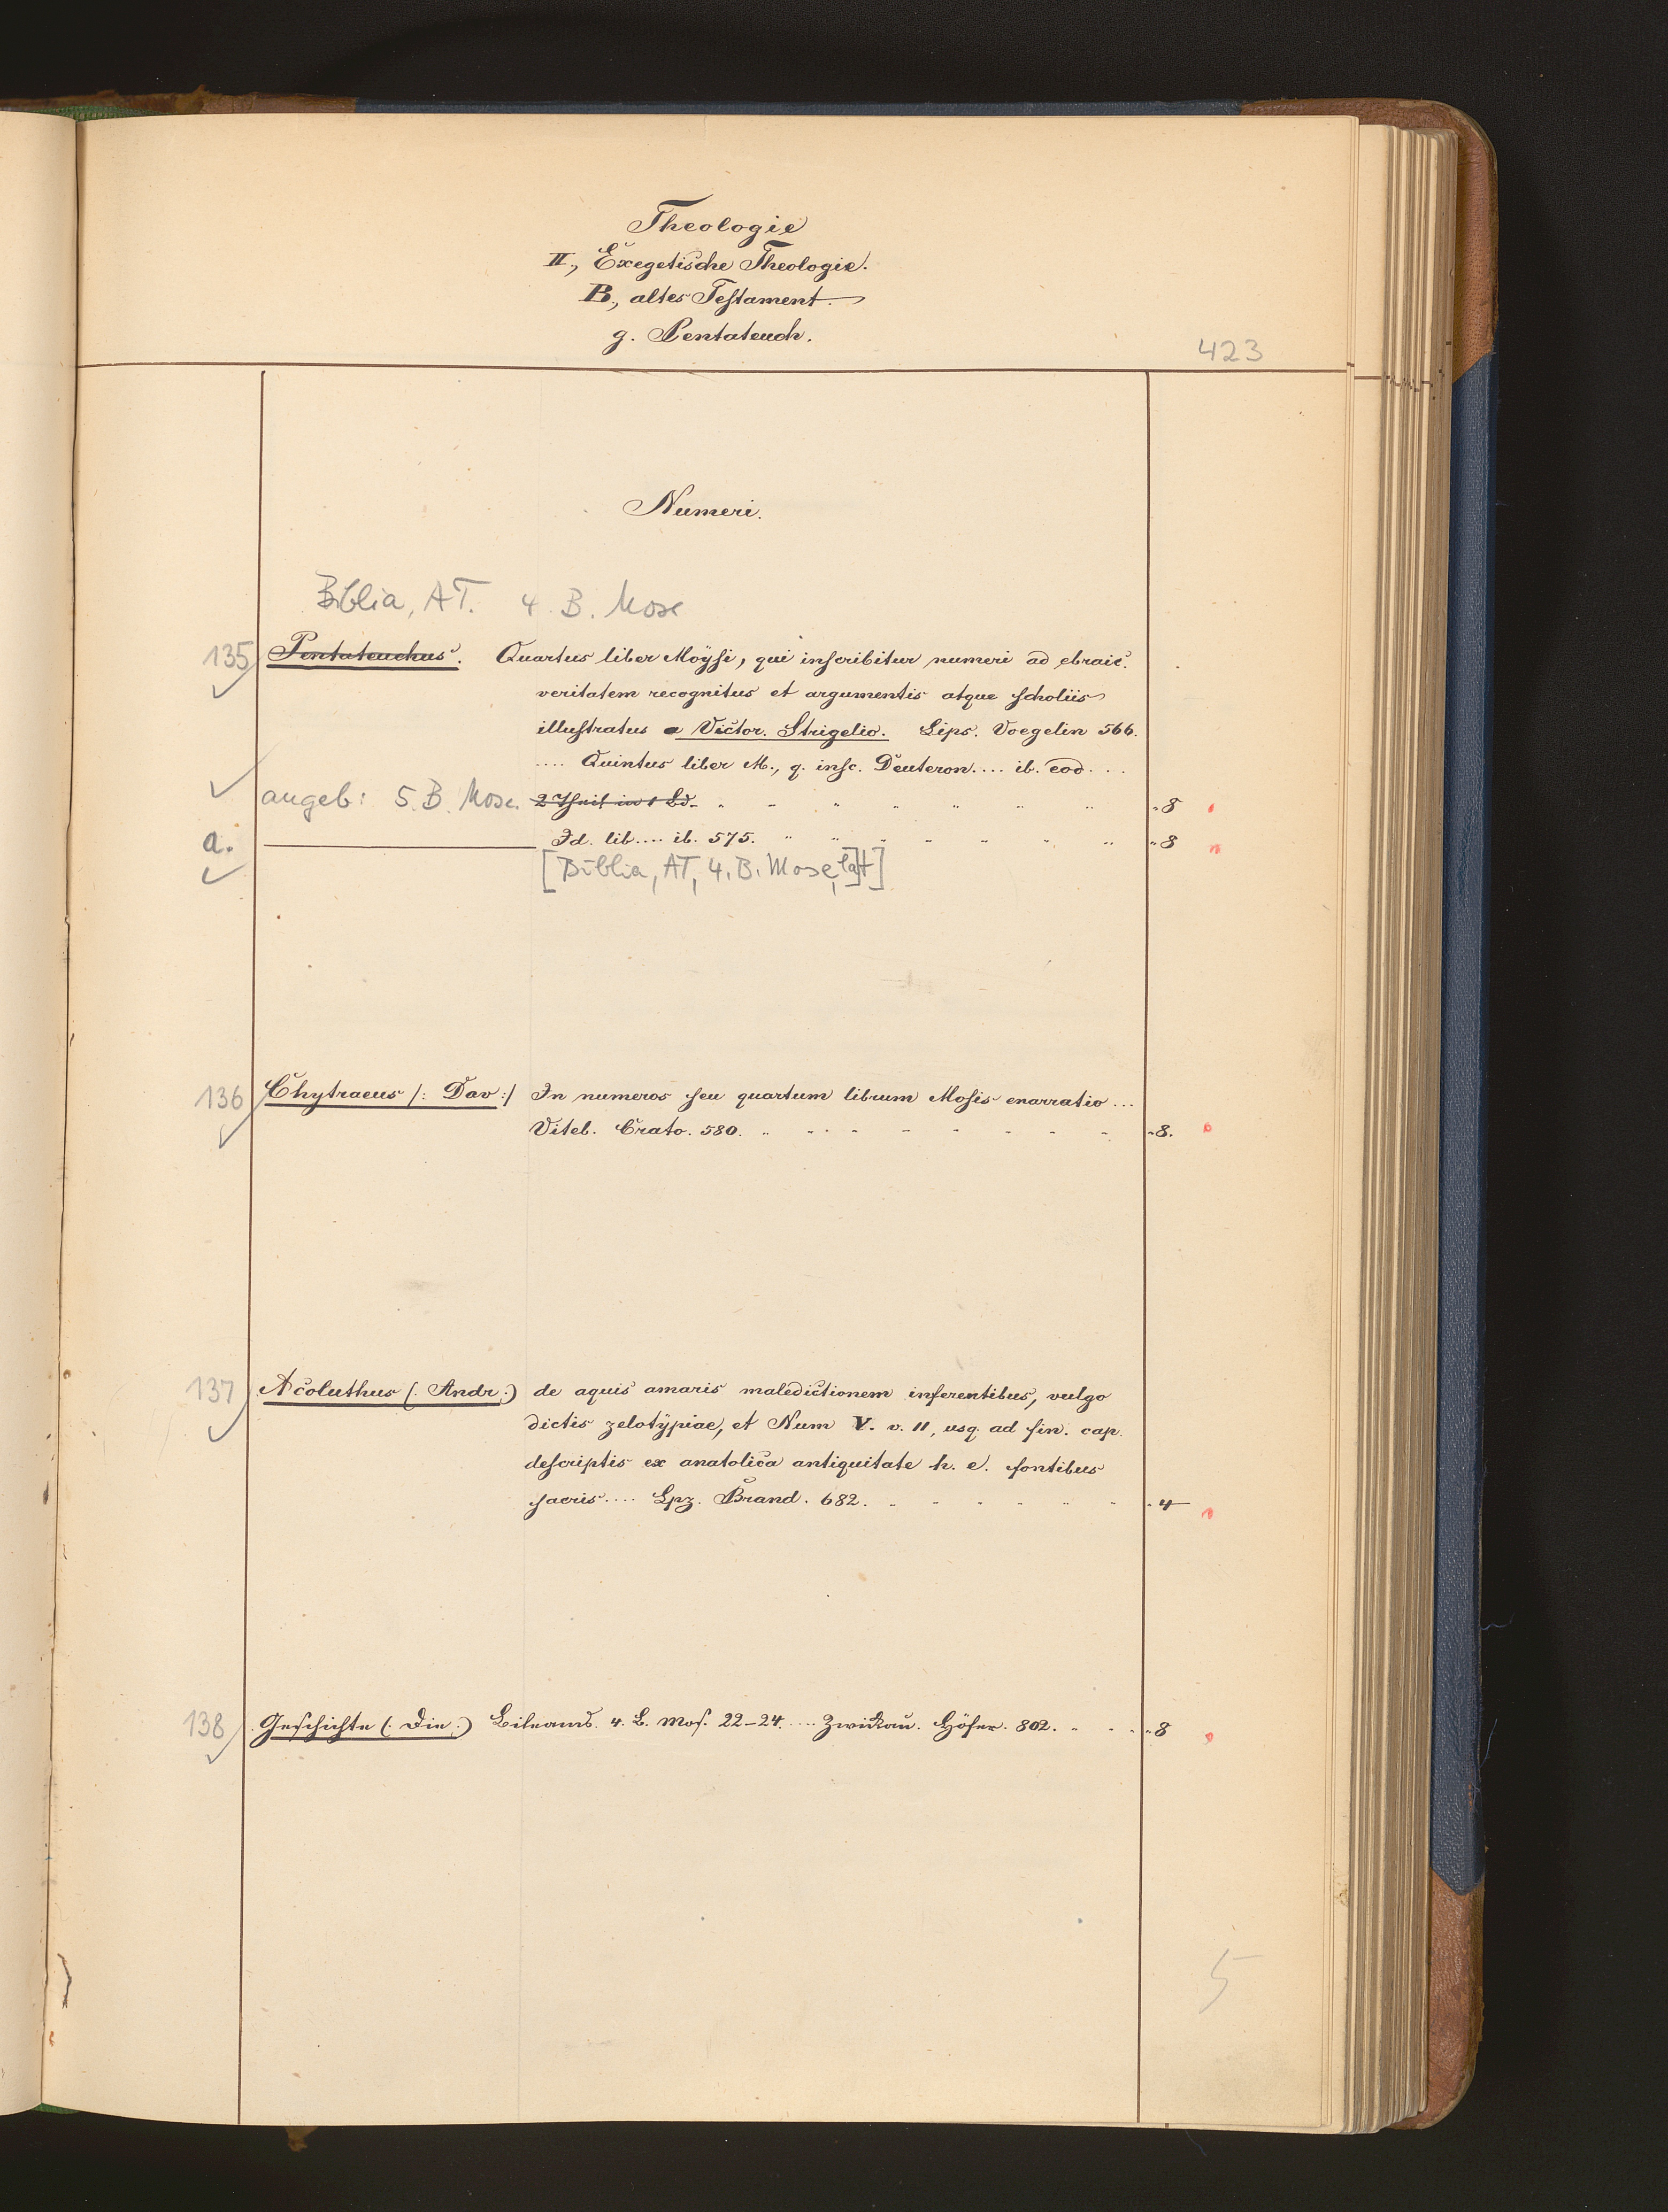 Theologie
II., Exegetische Theologie.
B., altes Testament.
g. Pentateuch.
423
Numeri.
Biblia, AT. 4. B. Mose
135 Pentateuchus. Quartus liber Moÿsi, qui inscribitur numeri ad ebraic.
veritatem recognitus et argumentis atque scholiis
illustratus a Victor. Strigelio. Lips. Voegelin 566.
.... Quintus liber M., q. insc. Deuteron.... ib. eod...
angeb: 5. B. Mose. 2 Theil in 1 Bd. " 8
a. Id. lib.... ib. 575. " 8
[Biblia, AT, 4. B. Mose, lat]
136 Chytraeus /: Dav :/ In numeros seu quartum librum Mosis enarratio...
Viteb. Crato. 580. - 8.
137 Acoluthus (: Andr :) de aquis amaris maledictionem inferentibus, vulgo
dictis zelotÿpiae, et Num V. v. 11, usq. ad fin. cap.
descriptis ex anatolica antiquitate h. e. fontibus
sacris.... Lpz. Brand. 682. - 4
138 Geschichte (: Die :) Bileams. 4. B. Mos. 22-24.... Zwickau. Höfer. 802. " 8
5